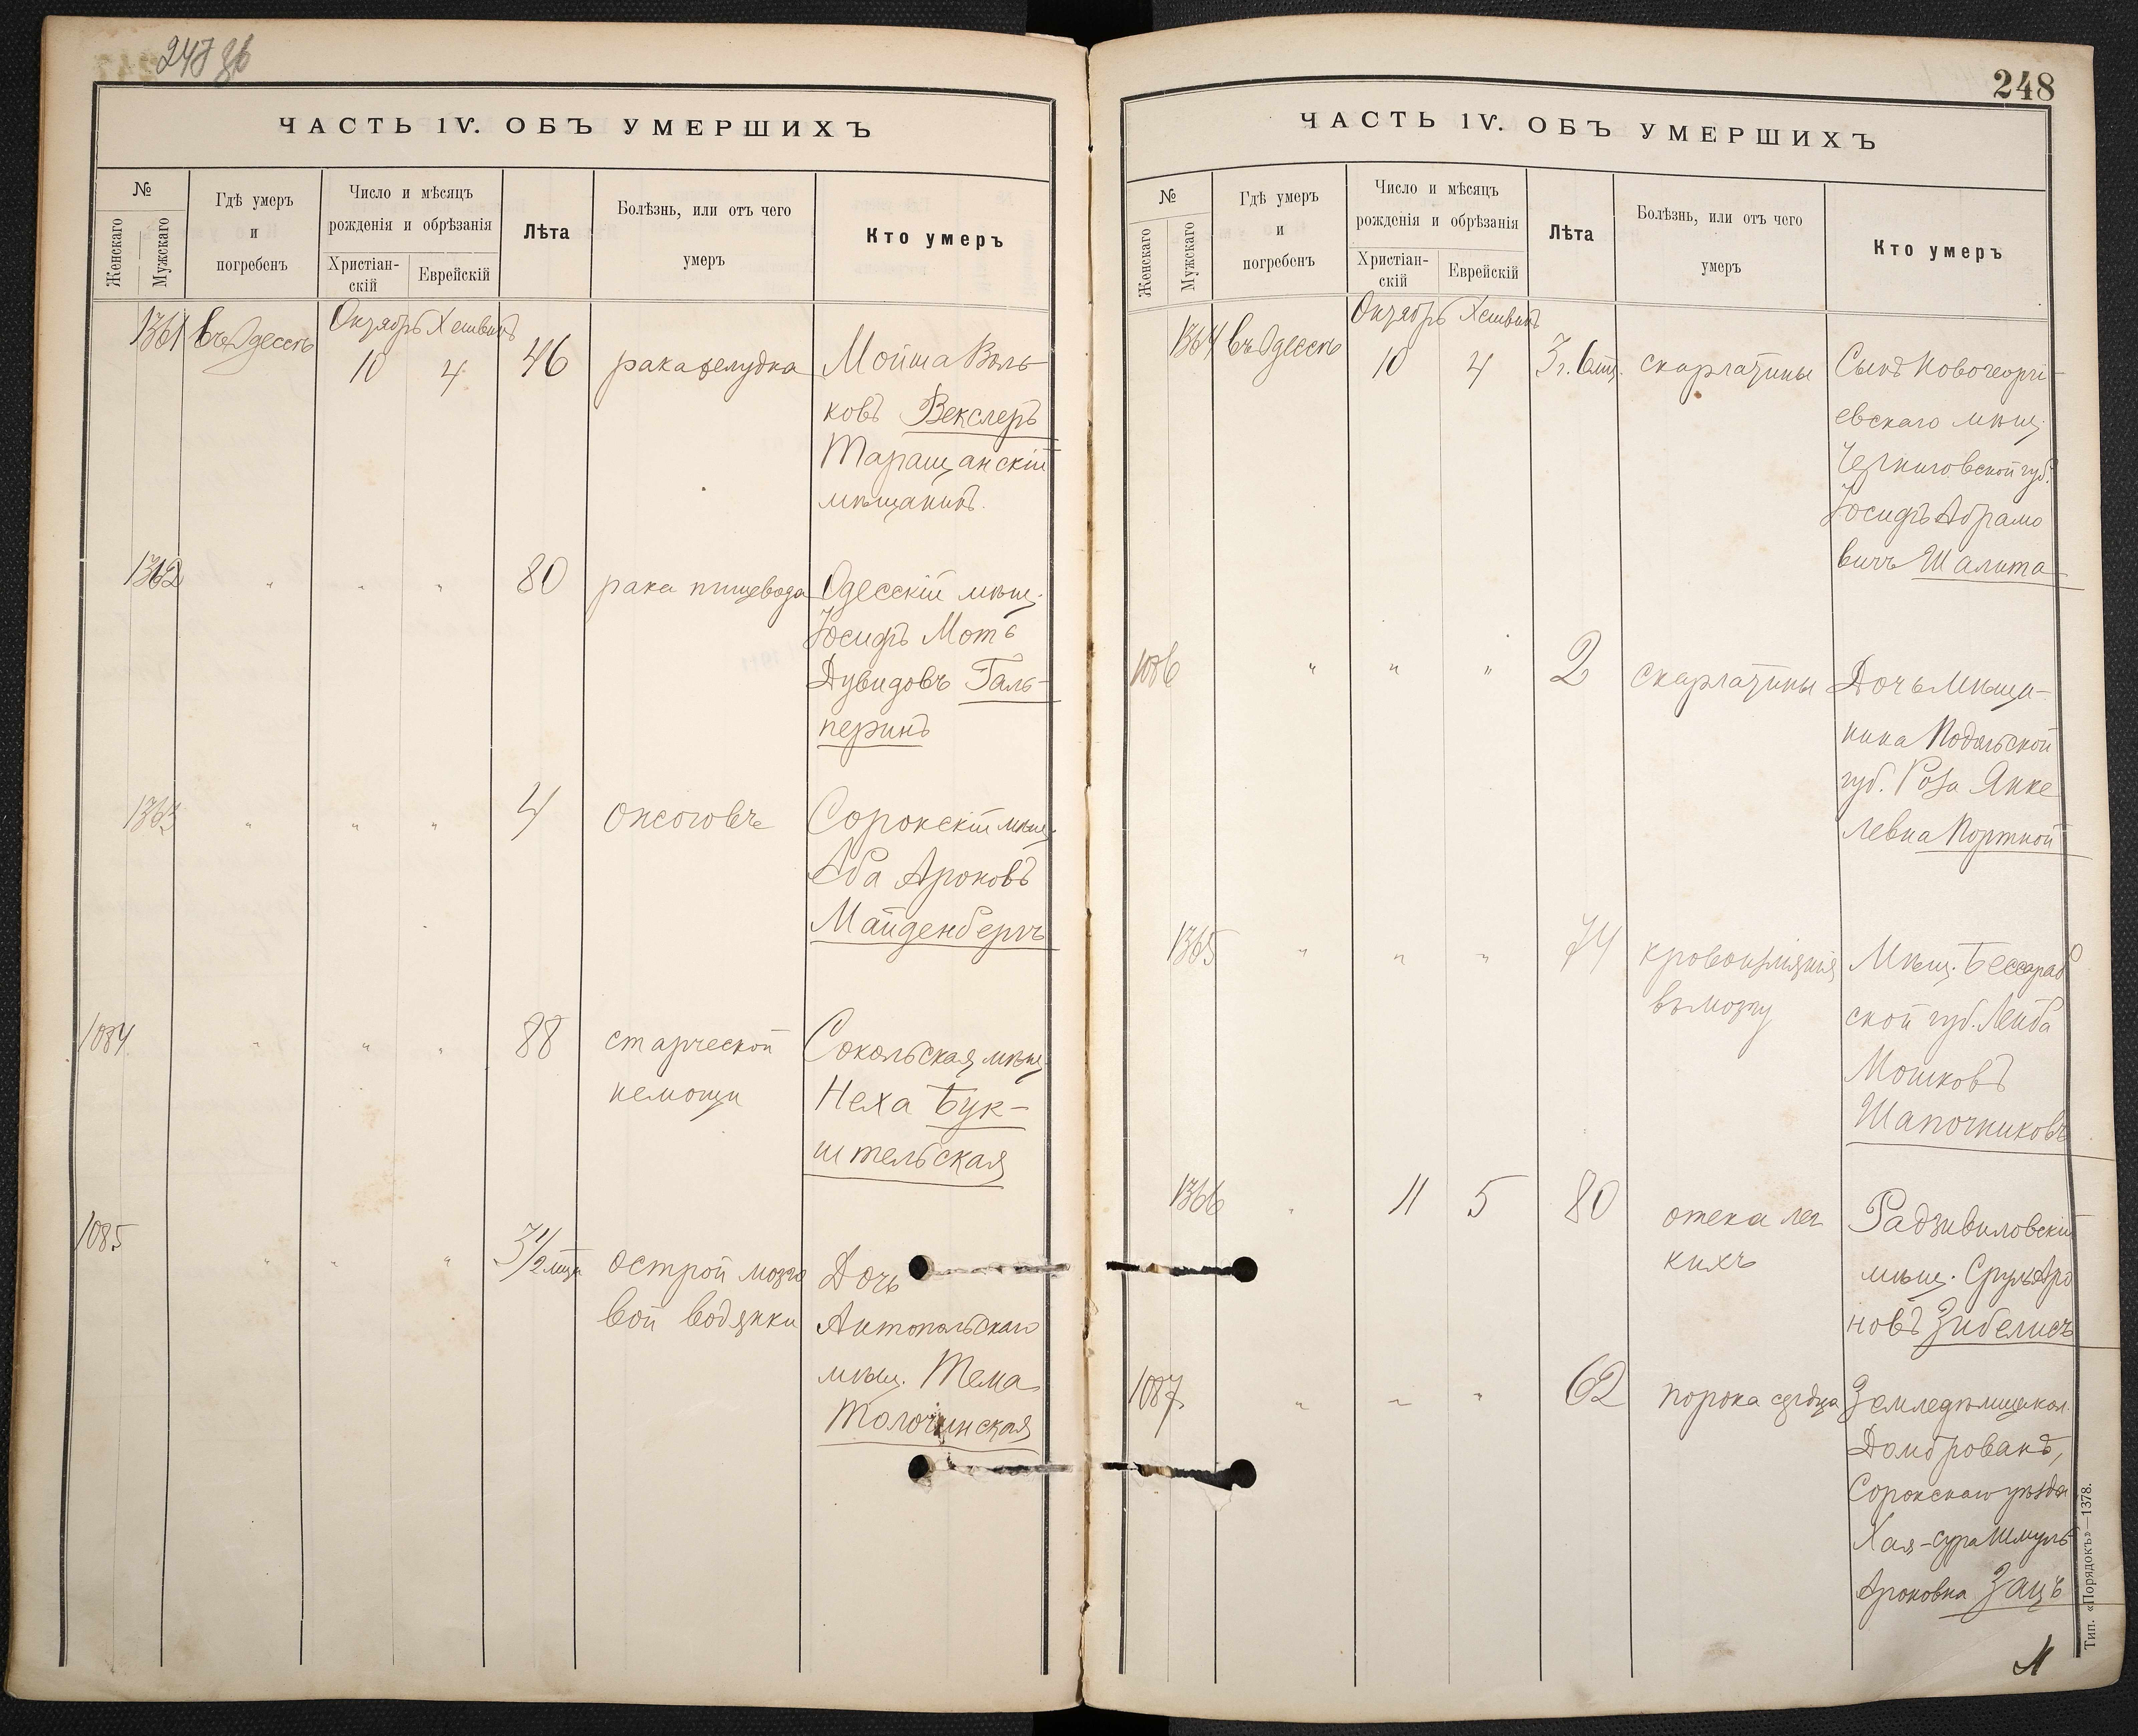 247 об
ЧАСТЬ IV. ОБЪ УМЕРШИХЪ
№
Женскаго
Мужскаго
Гдѣ умеръ
и
погребенъ
Число и мѣсяцъ
рожденія и обрѣзанія
Христіан-
скій
Еврейскій
Лѣта
Болѣзнь, или отъ чего
умеръ
Кто умеръ
1361 въ Одессѣ Октябрь Хешвинъ
10 4 46 рака желудка Мойша Воль-
ковъ Векслеръ
Таращанскій
мѣщанинъ.
1362 " " " 80 рака пищевода Одесскій мѣщ.
Іосифъ Мотъ
Дувидовъ Галь-
перинъ
1363 " " " 4 ожоговъ Сорокскій мѣщ.
Аба Ароновъ
Майденбергъ
1084 " " " 88 старческой Сокольская мѣщ.
немощи Неха Бук-
штельская
1085 " " " 3 1/2 мѣс острой мозго Дочь
вой водянки Антопольскаго
мѣщ. Тема
Толочинская
248
ЧАСТЬ IV. ОБЪ УМЕРШИХЪ
№
Женскаго
Мужскаго
Гдѣ умеръ
и
погребенъ
Число и мѣсяцъ
рожденія и обрѣзанія
Христіан-
скій
Еврейскій
Лѣта
Болѣзнь, или отъ чего
умеръ
Кто умеръ
1364 въ Одессѣ Октябрь Хешвинъ
10 4 3 г. 6 мѣс. скарлатины Сынъ Новогеоргі-
евскаго мѣщ.
Черниговской губ.
Іосифъ Абрамо
вичъ Шалита
1086 " " " 2 скарлатины Дочь мѣща-
нина Подольской
губ. Роза Янке
левна Портной
1365 " " " 74 кровоизліянія Мѣщ. Бессараб
въ мозгу ской губ. Лейба
Мошковъ
Шапочниковъ
1366 " 11 5 80 отека лег Радзивиловскій
кихъ мѣщ. Сруль Аро
новъ Зибелисъ
1087 " " " 62 порока сердца Земледѣлица кол.
Домбровакъ,
Сорокскаго уѣзда
Хая-Сура Шмуль
Ароновна Зацъ
Тип. «Порядокъ»—1378.